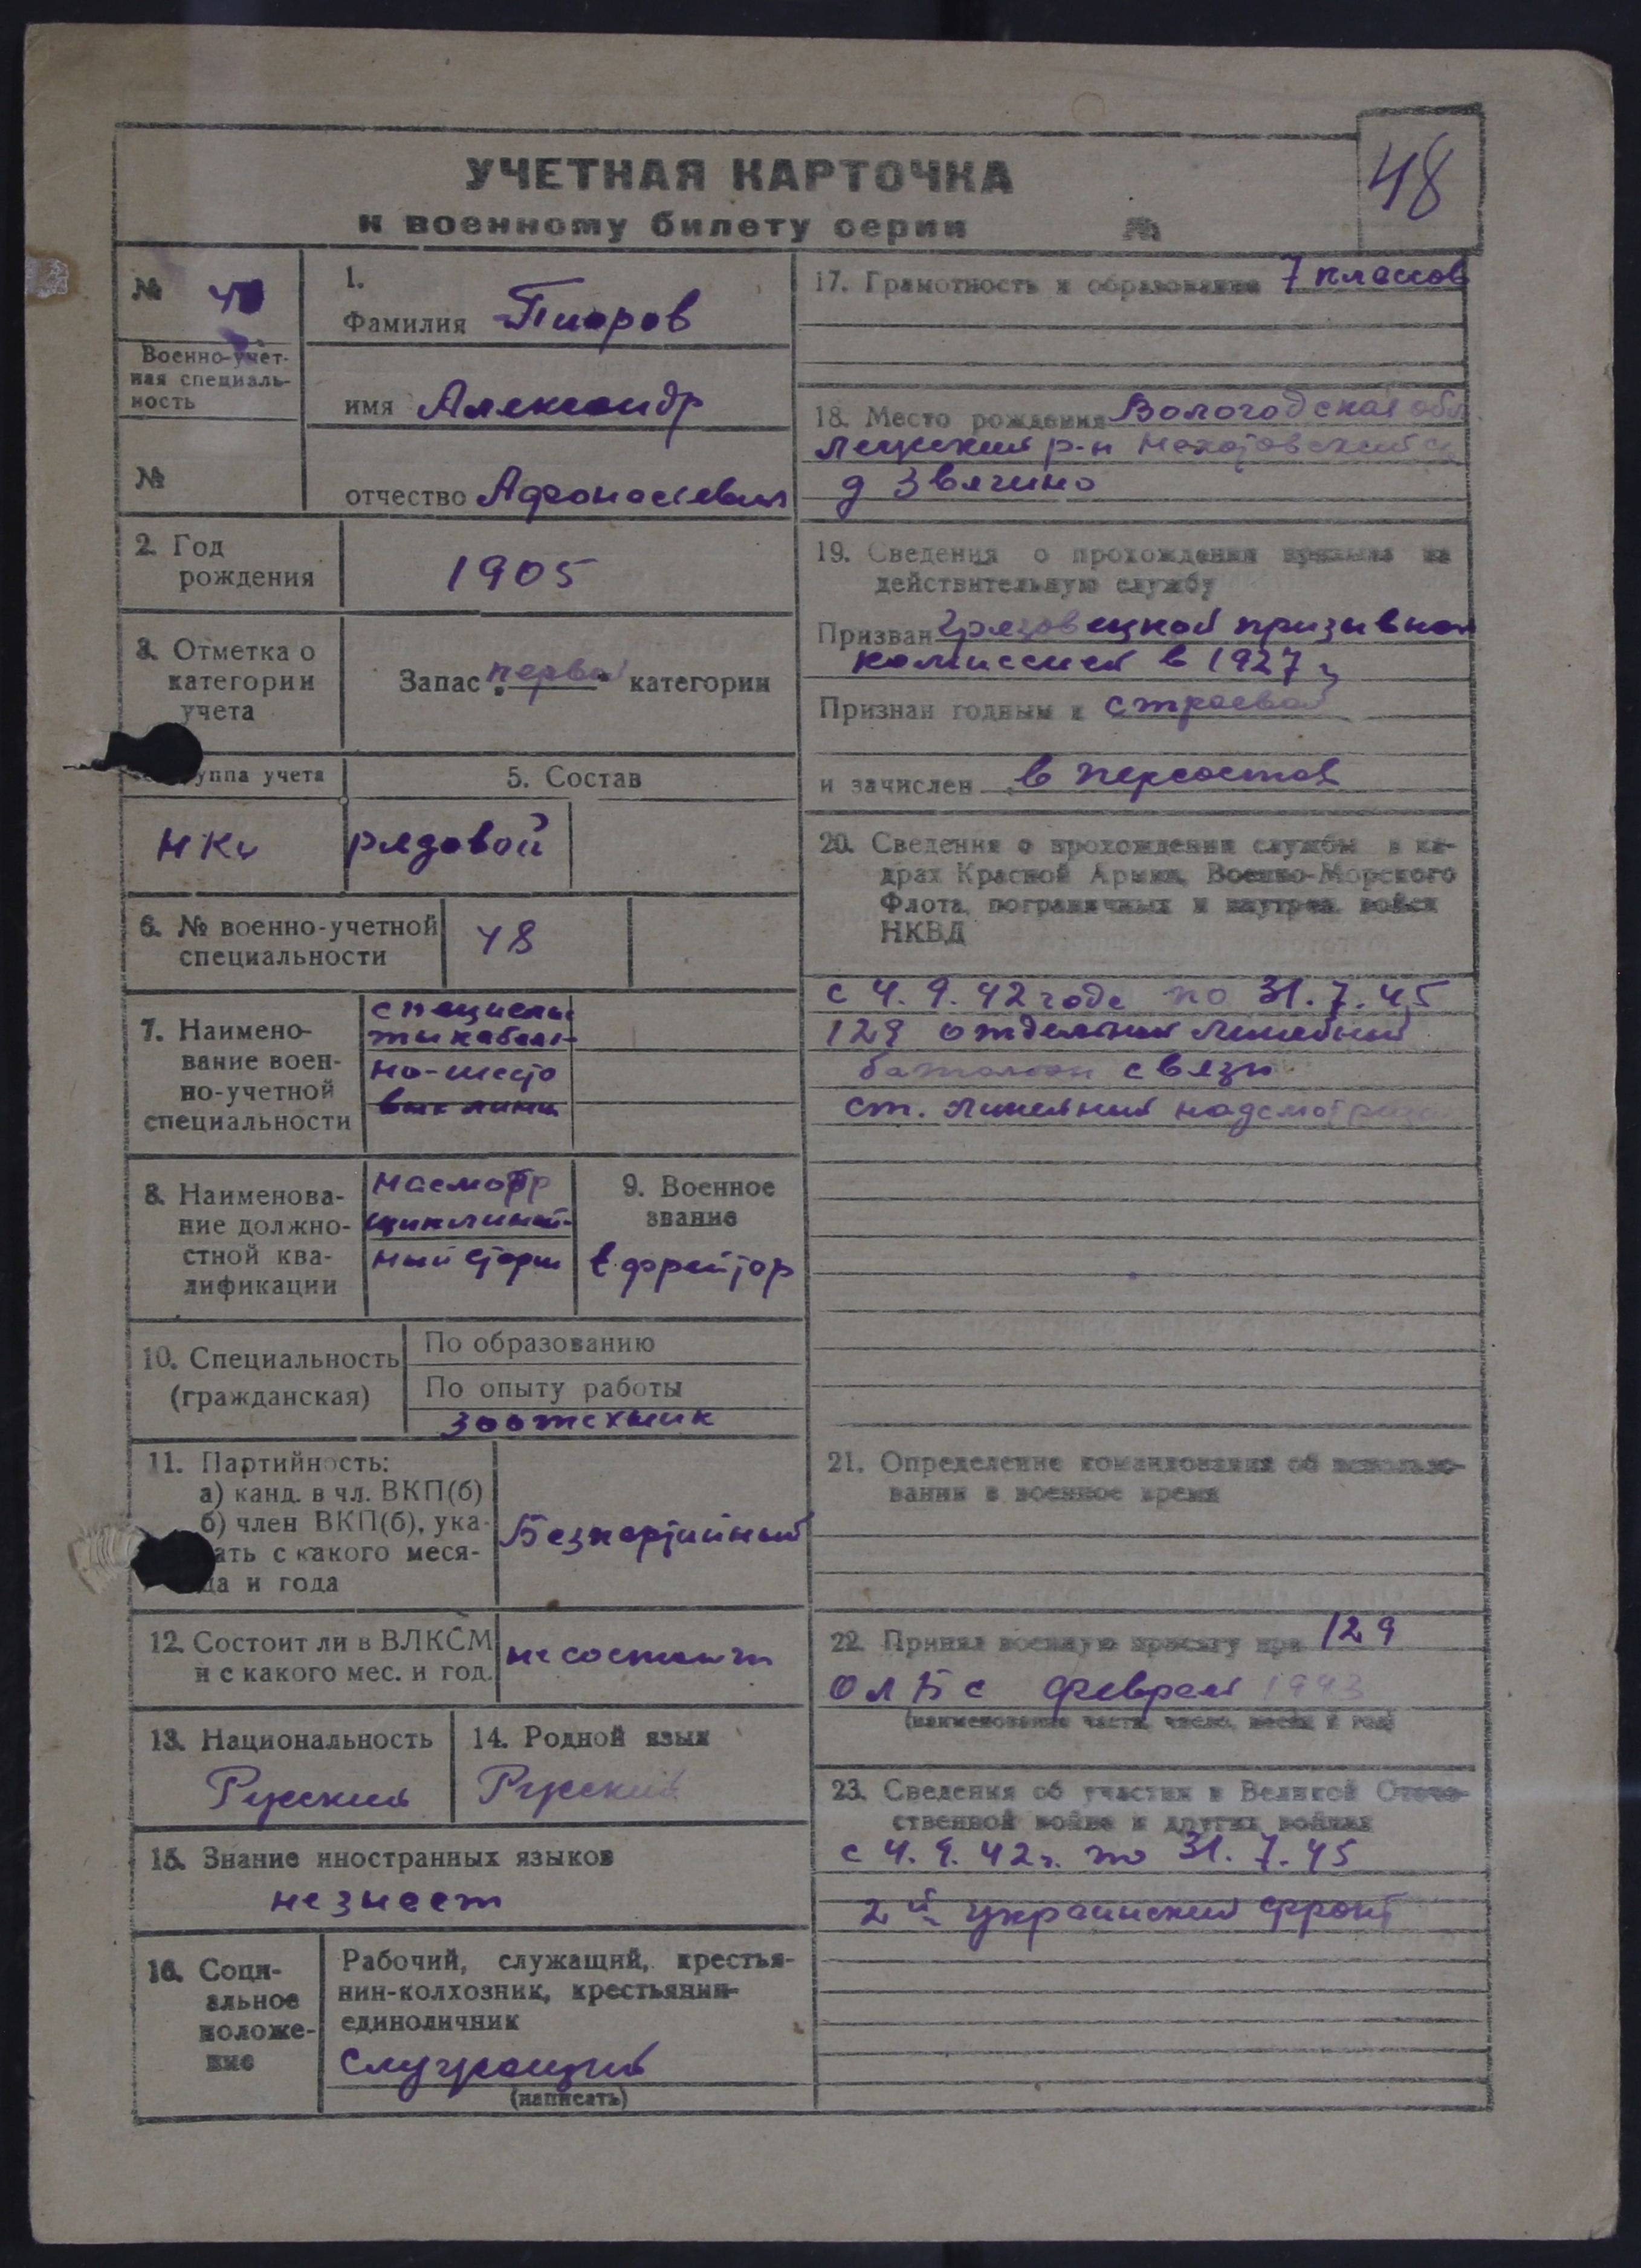 48
УЧЕТНАЯ КАРТОЧКА
к военному билету серии №
№
Военно-учет-
ная специаль-
ность
№
1.
Фамилия
имя Александр
отчество Афонасиевич
2. Год
рождения
1905
3. Отметка о
категории
учета
Запас „первой“ категории
уппа учета
5. Состав
рядовой
6. № военно-учетной
специальности
48
7. Наимено-
вание воен-
но-учетной
специальности
специалис
ты кабель-
но-шесто
вык линий
8. Наименова-
ние должно-
стной ква-
лификации
насмотр
щик линей-
ный старш
9. Военное
звание
ефрейтор
10. Специальность
(гражданская)
По образованию
По опыту работы
зоотехник
11. Партийность:
а) канд. в чл. ВКП(б)
б) член ВКП(б), ука-
ать с какого меся-
ца и года
Безпартийный
12. Состоит ли в ВЛКСМ
и с какого мес. и год.
не состоит
13. Национальность
Русский
14. Родной язык
Русский
15. Знание иностранных языков
не знает
16. Соци-
альное
положе-
ние
Рабочий, служащий, крестья-
нин-колхозник, крестьянин-
единоличник
Служащий
(написать)
17. Грамотность и образование 7 классов
18. Место рождения Вологодская обл.
р-н
д Звягино
19. Сведения о прохождении призыва на
действительную службу
Призван Грязовецкой призывной
комиссией в 1927 г
Признан годным к строевой
и зачислен в
20. Сведения о прохождении службы в ка-
драх Красной Армии, Военно-Морского
Флота, пограничных и внутрен. войск
НКВД
с 4. 9. 42 года по 31. 7. 45
129 отдельный линейный
батальон связи
ст. линейный надсмотрщик
21. Определение командования об использо-
вании в военное время
22. Принял военную присягу при 129
ОЛБС феврале 1943
(наименование части, число, месяц и год)
23. Сведения об участии в Великой Отече-
ственной войне и других войнах
с 4. 9. 42 г. по 31. 7. 45
2й украинский фронт